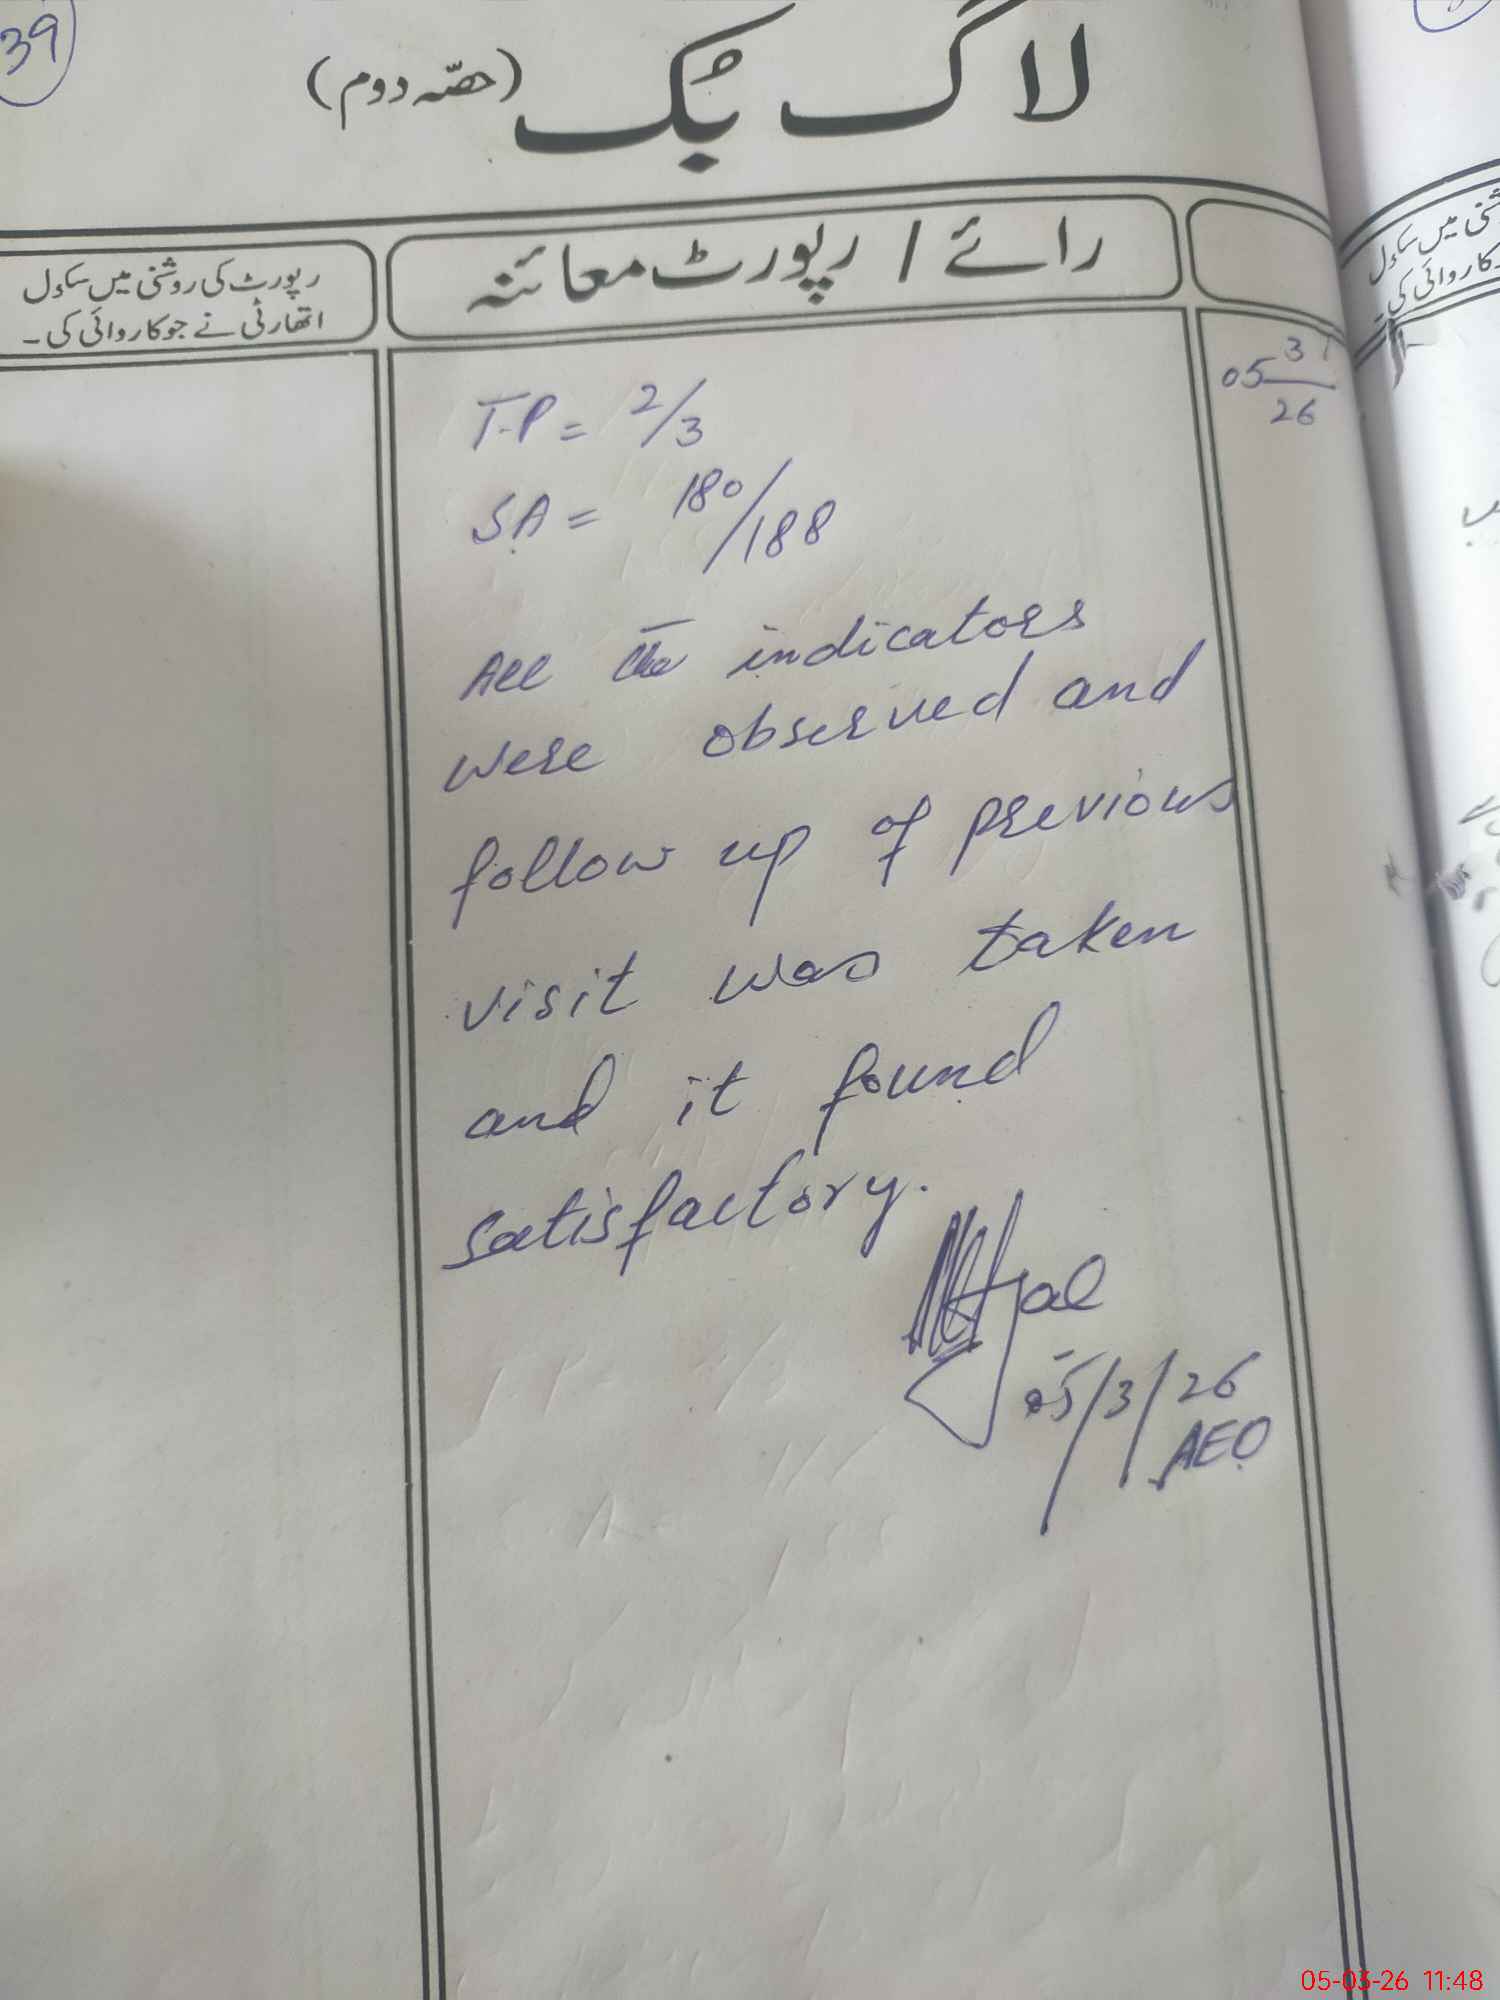 39
لاگ بُک (حصّہ دوم)
رائے / رپورٹ معائنہ
رپورٹ کی روشنی میں سکول
اتھارٹی نے جو کاروائی کی۔
05 3
26
T.P = 2/3
SA = 180/188
All the indicators
were observed and
follow up of previous
visit was taken
and it found
satisfactory.
05/3/26
AEO
05-03-26 11:48